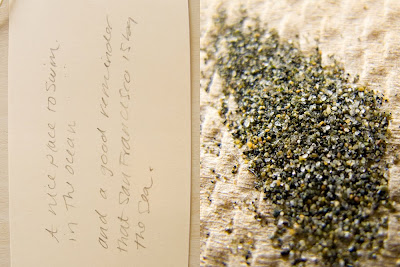 A nice place to swim
in the ocean
and a good reminder
that San Francisco is by
the sea.